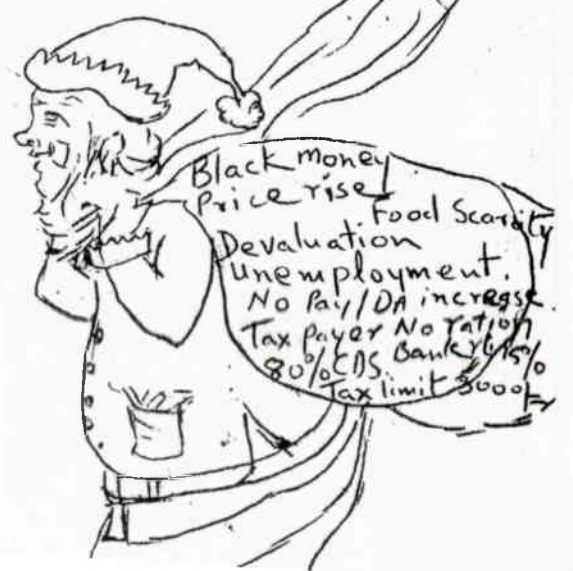 Black money
Price rise
Food Scarcity
Devaluation
Unemployment.
No Pay/DA increase
Tax payer No ration
80% CDS. Bank 15%
Tax limit 3000